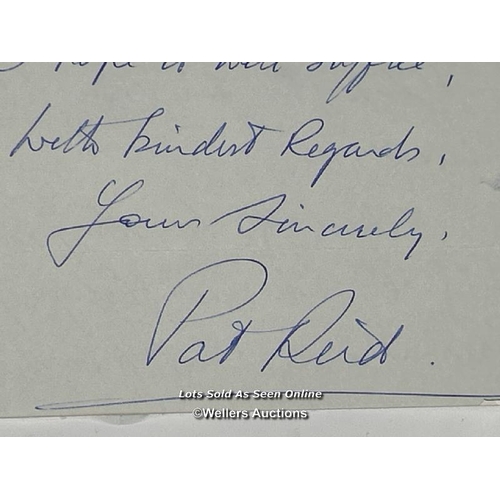 hope it will suffice,
With kindest Regards,
Yours Sincerely,
Pat Reid.
Lots Sold As Seen Online
©Wellers Auctions